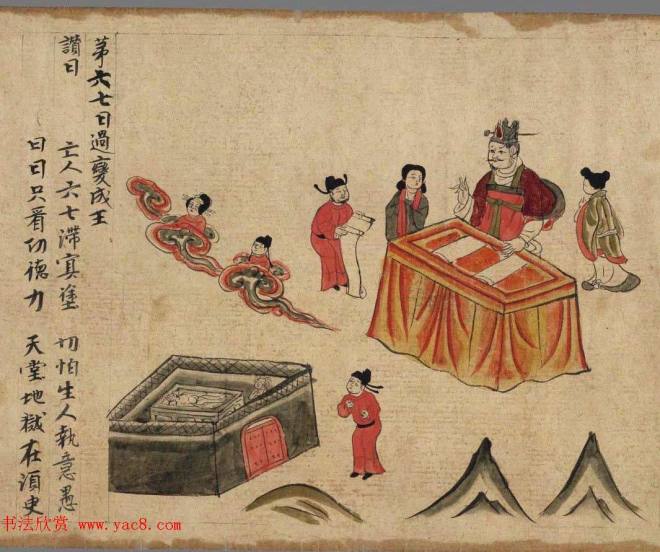 苐六七日過變成王
讚曰 亡人六七滯冥塗 切怕生人執意愚
日日只看功德力 天堂地獄在湏臾
书法欣赏 www.yac8.com